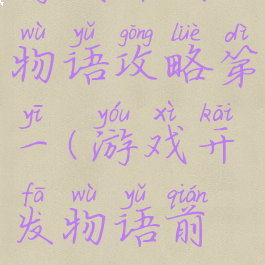 wù yǔ gōng lüè dì
物语攻略第
yī yóu xì kāi
一(游戏开
fā wù yǔ qián
发物语前